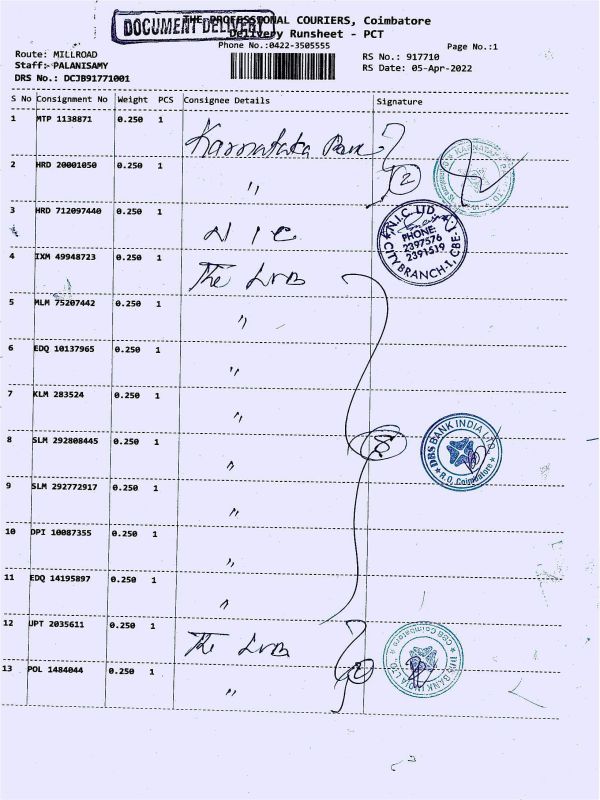 DOCUMENT DELIVERY
THE PROFESSIONAL COURIERS, Coimbatore
Delivery Runsheet - PCT
Phone No.:0422-3505555
Page No.:1
Route: MILLROAD
RS No.: 917710
Staff: PALANISAMY
RS Date: 05-Apr-2022
DRS No.: DCJB91771001
S No Consignment No Weight PCS Consignee Details Signature
1 MTP 1138871 0.250 1 Karnataka Ban
2 HRD 20001050 0.250 1 " 2
3 HRD 712097440 0.250 1 N I C
N.I.C. LTD
PHONE:
2397576
2391519
CITY BRANCH-I, CBE-1
4 IXM 49948723 0.250 1 The LVB
5 MLM 75207442 0.250 1 "
6 EDQ 10137965 0.250 1 "
7 KLM 283524 0.250 1 "
8 SLM 292808445 0.250 1 " 8
DBS BANK INDIA LTD.
R.O, Coimbatore
9 SLM 292772917 0.250 1 "
10 DPI 10087355 0.250 1 "
11 EDQ 14195897 0.250 1 "
12 JPT 2035611 0.250 1 The LVB
13 POL 1484044 0.250 1 " 2
DBS BANK INDIA LTD.
CBB Coimbatore